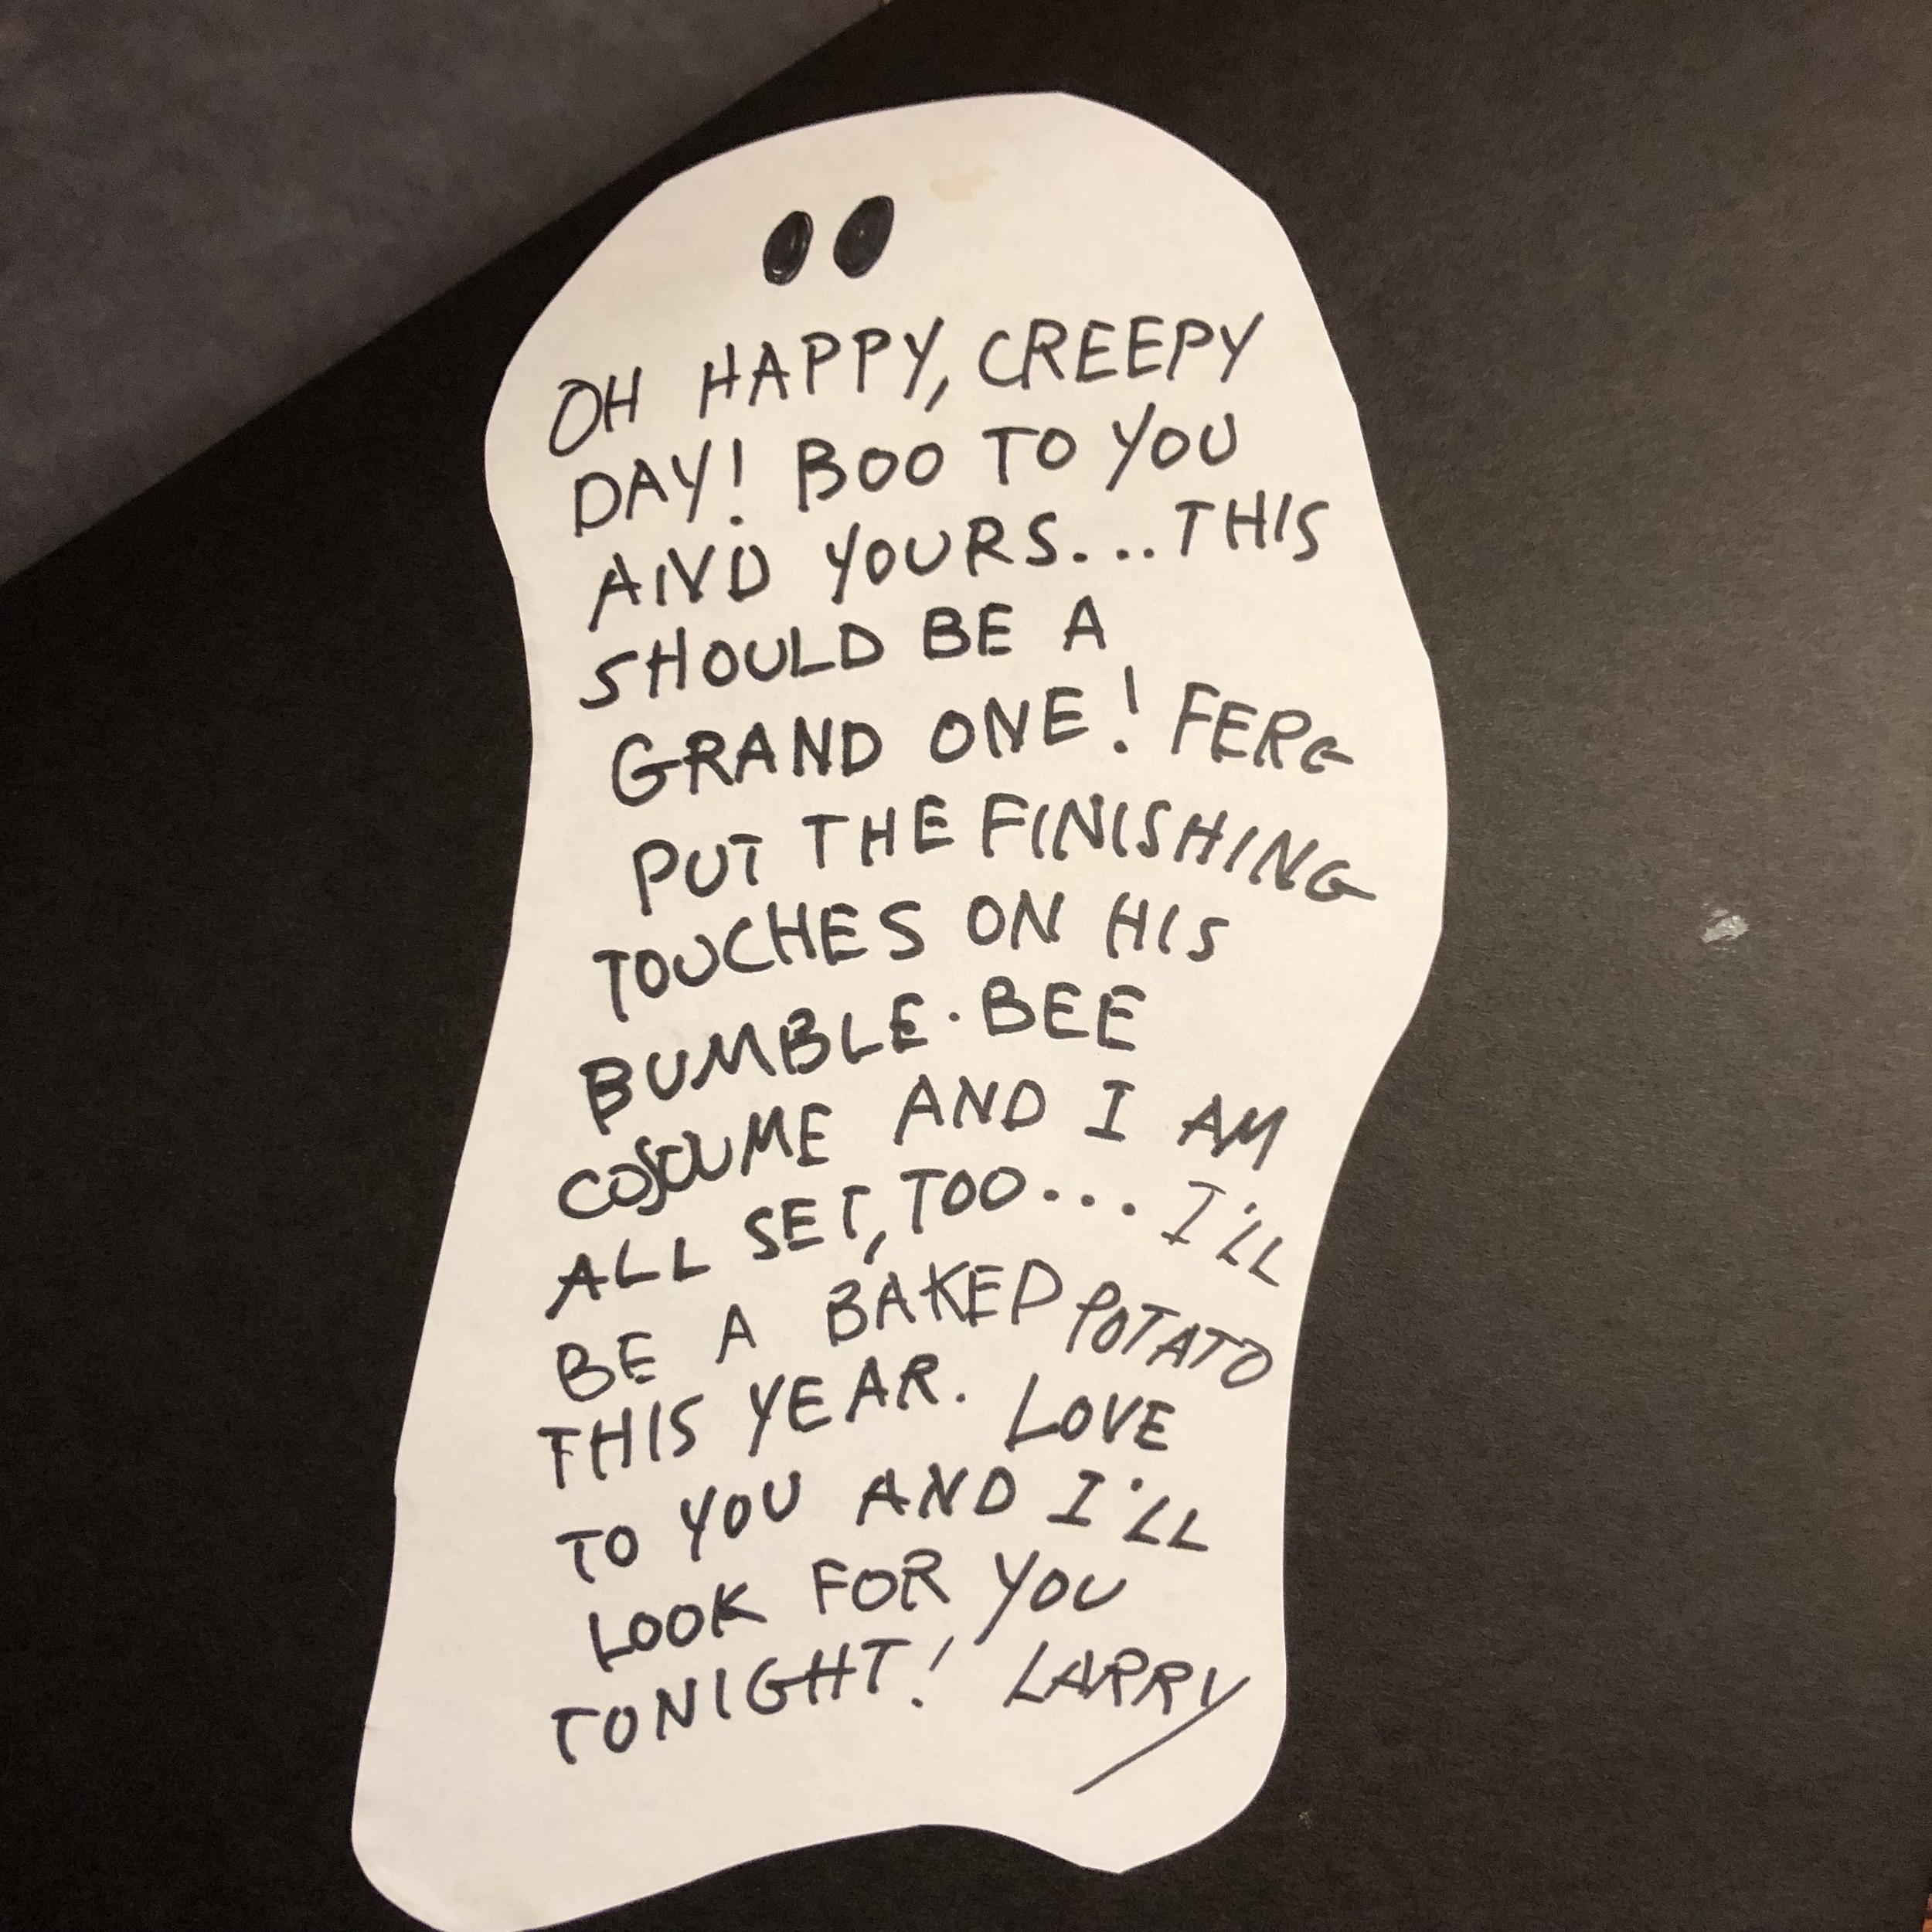 OH HAPPY, CREEPY
DAY! BOO TO YOU
AND YOURS...THIS
SHOULD BE A
GRAND ONE! FERG
PUT THE FINISHING
TOUCHES ON HIS
BUMBLE·BEE
COSOUME AND I AM
ALL SET, TOO... I'LL
BE A BAKED POTATO
THIS YEAR. LOVE
TO YOU AND I'LL
LOOK FOR YOU
TONIGHT! LARRY